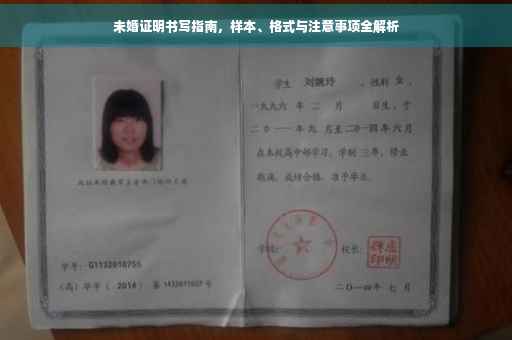 未婚证明书写指南，样本、格式与注意事项全解析
学生 刘婉玲 ，性别 女 ，
一九九六 年 二 月 日生，于
二〇一一年 九 月至二〇一四年 六 月
在本校高中部学习，学制 三年，修业
期满，成绩合格，准予毕业。
学校： 校长：
二〇一四年 七 月
学号： G1132010755
（高）毕字（ 2014 ）第 1432011027 号